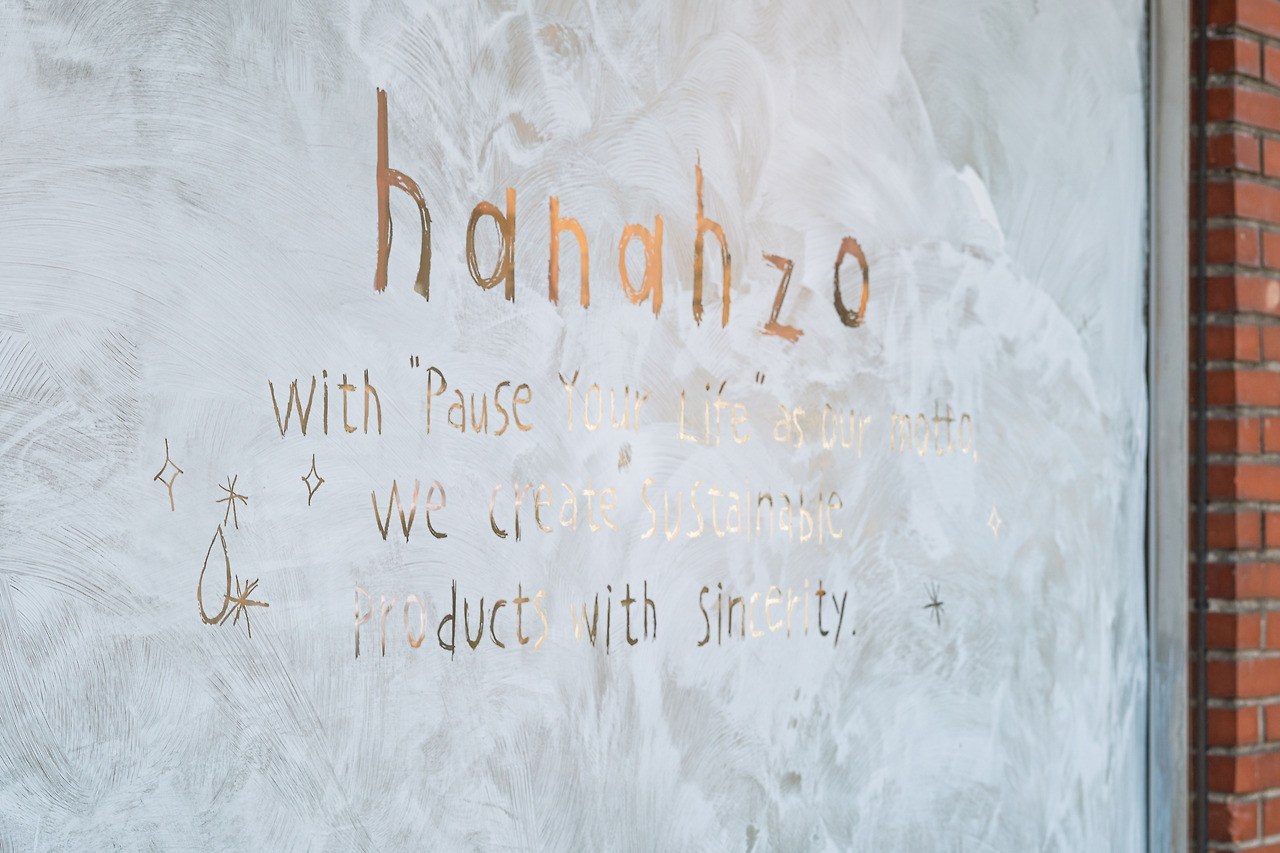 hanahzo
With "Pause Your Life" as our motto,
We create Sustainable
Products with Sincerity.